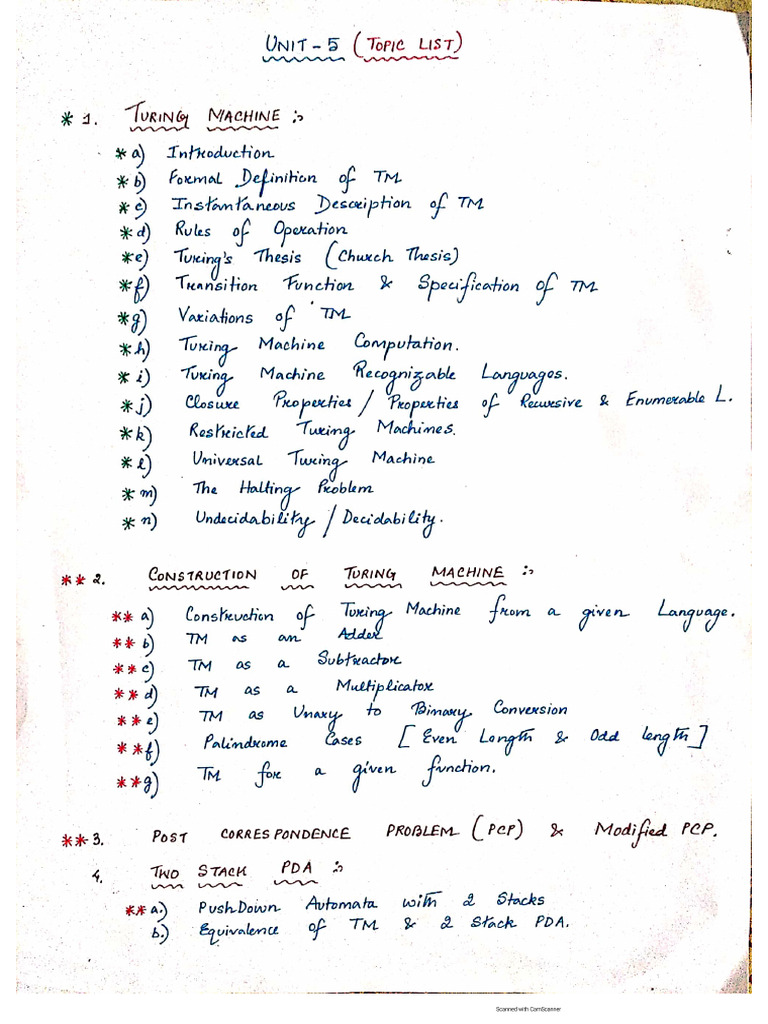 UNIT - 5 (TOPIC LIST)
* 1. TURING MACHINE :-
* a) Introduction
* b) Formal Definition of TM
* c) Instantaneous Description of TM
* d) Rules of Operation
* e) Turing's Thesis (Church Thesis)
* f) Transition Function & Specification of TM
* g) Variations of TM
* h) Turing Machine Computation.
* i) Turing Machine Recognizable Languages.
* j) Closure Properties / Properties of Recursive & Enumerable L.
* k) Restricted Turing Machines.
* l) Universal Turing Machine
* m) The Halting Problem
* n) Undecidability / Decidability.
** 2. CONSTRUCTION OF TURING MACHINE :-
** a) Construction of Turing Machine from a given Language.
** b) TM as an Adder
** c) TM as a Subtractor
** d) TM as a Multiplicator
** e) TM as Unary to Binary Conversion
** f) Palindrome Cases [Even Length & Odd length]
** g) TM for a given function.
** 3. POST CORRESPONDENCE PROBLEM (PCP) & Modified PCP.
4. TWO STACK PDA :-
** a.) PushDown Automata with 2 Stacks
b.) Equivalence of TM & 2 Stack PDA.
Scanned with CamScanner